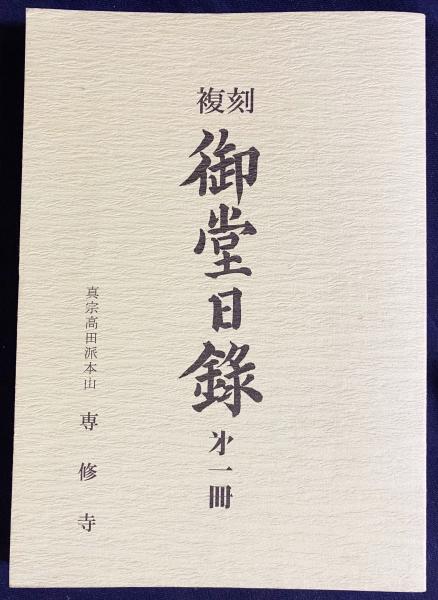 複刻
御堂日録
㐧一冊
真宗高田派本山 専修寺